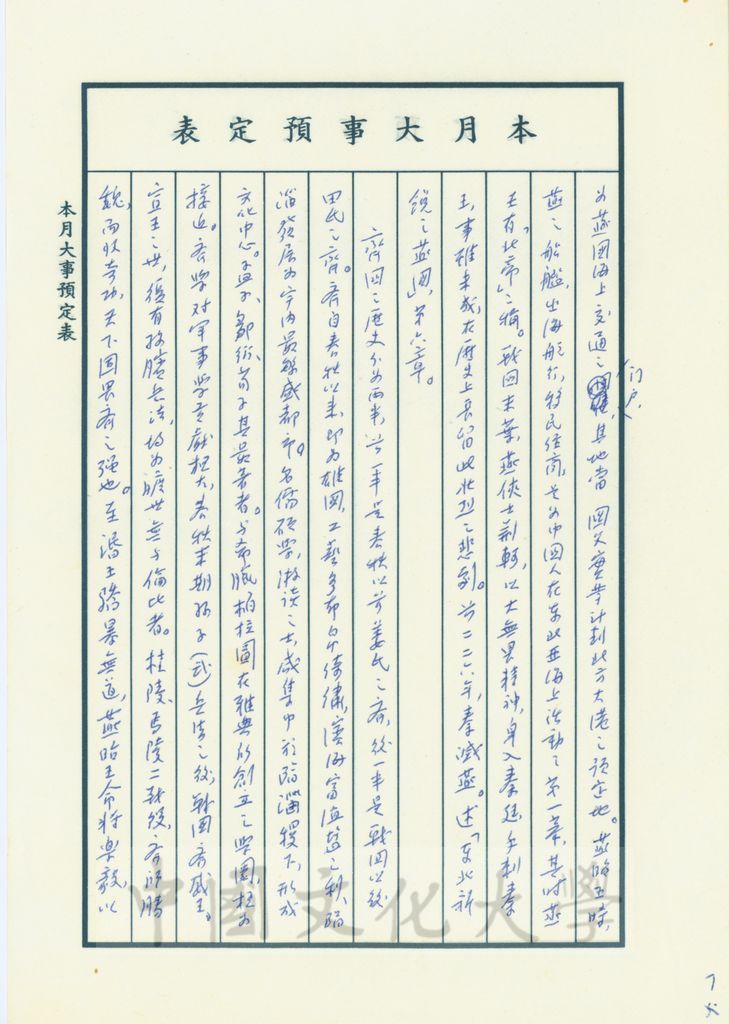 本月大事預定表
為燕国海上交通之门户,其地當 國父實業計劃北方大港之預定地。燕昭王時,
燕之船艦,出海航行,移民經商,是為中國人在东北亚海上活動之第一章,其時燕
王有「北帝」之稱。戰国末葉,燕俠士荊軻,以大無畏精神,單入秦廷,手刺秦
王,事雖未成,在歷史上長留此壯烈之悲劇。前二二六年,秦滅燕。述「东北新
銳之燕國」,第六章。
齊国之歷史分为両半,前一半是春秋以前姜氏之齐,後一半是戰国以後
田氏之齊。齊自春秋以来,即为雄國,工藝多布帛綺繡,濱海富漁鹽之利,臨
淄發展为宇内最繁盛都市。名儒碩學,游谈之士,咸集中於臨淄稷下,形成
文化中心。孟子、鄒衍、荀子其最著者。与希腊柏拉圖在雅典所創立之學園,极为
接近。齐學对軍事學貢獻極大,春秋末期孫子(武)兵法之後,戰國齐威王、
宣王之世,復有孫臏兵法,均为曠世無与倫比者。桂陵、馬陵二戰役,齐師勝
魏,而收奇功,天下固畏齐之强也。至湣王驕暴無道,燕昭王命将樂毅,以
本月大事預定表
中國文化大學